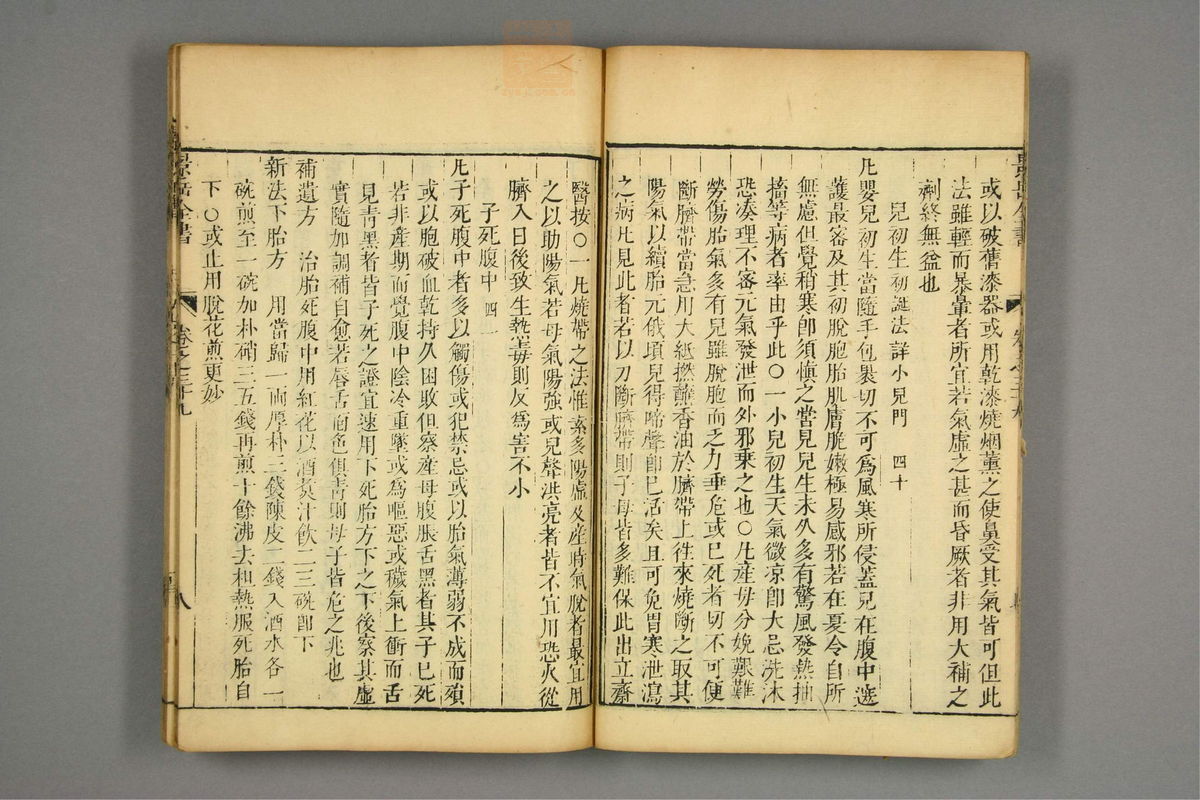 或以破舊漆器或用乾漆燒烟薰之使鼻受其氣皆可但此
法雖輕而暴暈者所宜若氣虛之甚而昏厥者非用大補之
劑終無益也
兒初生初誕法詳小兒門 四十
凡嬰兒初生當隨手包裹切不可爲風寒所侵蓋兒在腹中遮
護最密及其初脫胞胎肌膚脆嫩極易感邪若在夏令自所
無慮但覺稍寒卽須愼之嘗見兒生未久多有驚風發熱抽
搐等病者率由乎此〇一小兒初生天氣微凉卽大忌洗沐
恐湊理不密元氣發泄而外邪乗之也〇凡産母分娩艱難
勞傷胎氣多有兒雖脫胞而乏力垂危或已死者切不可便
斷臍帶當急用大紙撚蘸香油於臍帶上往來燒斷之取其
陽氣以續胎元俄頃兒得啼聲卽已活矣且可免胃寒泄瀉
之病凡見此者若以刀斷臍帶則子母皆多難保此出立齋
醫按〇一凡燒帶之法惟素多陽虛及産時氣脫者最宜用
之以助陽氣若母氣陽強或兒聲洪亮者皆不宜用恐火從
臍入日後致生熱毒則反爲害不小
子死腹中 四一
凡子死腹中者多以觸傷或犯禁忌或以胎氣薄弱不成而殞
或以胞破血乾持久困敗但察産母腹脹舌黑者其子已死
若非産期而覺腹中陰冷重墜或爲嘔惡或穢氣上衝而舌
見青黑者皆子死之證宜速用下死胎方下之下後察其虛
實隨加調補自愈若唇舌面色俱青則母子皆危之兆也
補遺方 治胎死腹中用紅花以酒煑汁飮二三碗卽下
新法下胎方 用當歸一兩厚朴三錢陳皮二錢入酒水各一
碗煎至一碗加朴硝三五錢再煎十餘沸去柤熱服死胎自
下〇或止用脫花煎更妙
景岳全書
卷之三十九
八